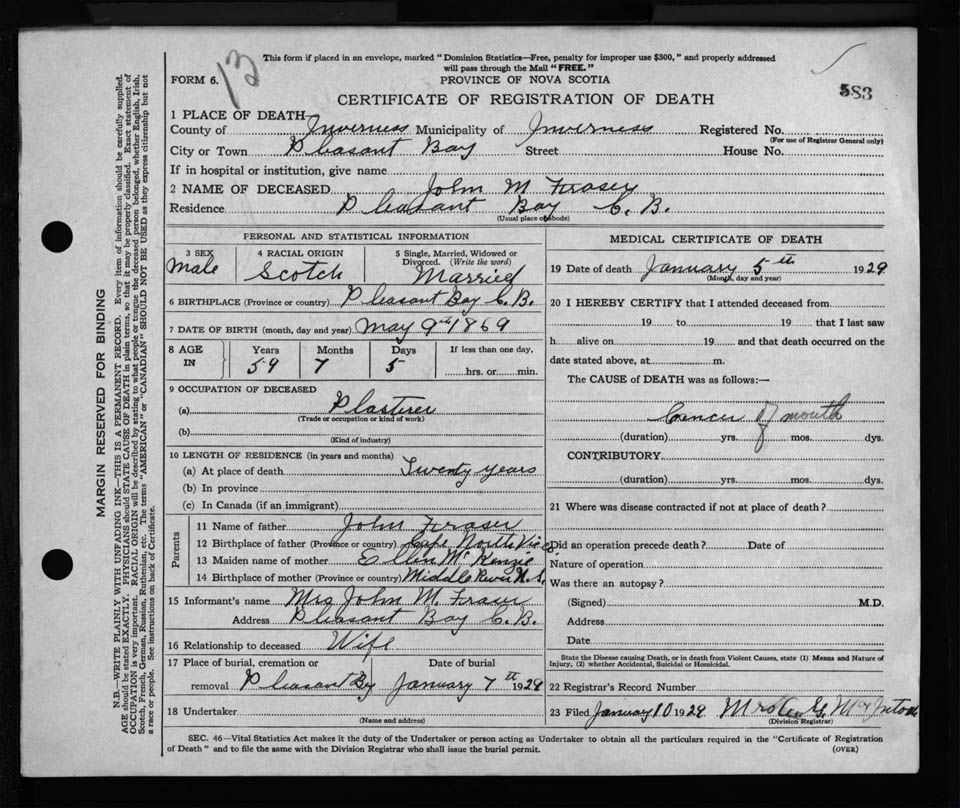 This form if placed in an envelope, marked "Dominion Statistics—Free, penalty for improper use $300," and properly addressed
will pass through the Mail "FREE."
13
FORM 6.
PROVINCE OF NOVA SCOTIA
583
CERTIFICATE OF REGISTRATION OF DEATH
1 PLACE OF DEATH
County of Inverness Municipality of Inverness Registered No.
(For use of Registrar General only)
City or Town Pleasant Bay Street House No.
If in hospital or institution, give name
2 NAME OF DECEASED John M Fraser
Residence Pleasant Bay C.B.
(Usual place of abode)
MARGIN RESERVED FOR BINDING
N.B.—WRITE PLAINLY WITH UNFADING INK—THIS IS A PERMANENT RECORD. Every item of information should be carefully supplied.
AGE should be stated EXACTLY. PHYSICIANS should STATE CAUSE OF DEATH in plain terms, so that it may be properly classified. Exact statement of
OCCUPATION is very important. RACIAL ORIGIN will be described by stating to what people or tongue the deceased person belonged, whether English, Irish,
Scotch, French, German, Russian, Ruthenian, etc. The terms "AMERICAN" or "CANADIAN" SHOULD NOT BE USED as they express citizenship but not
a race or people. See instructions on back of Certificate.
PERSONAL AND STATISTICAL INFORMATION
3 SEX 4 RACIAL ORIGIN 5 Single, Married, Widowed or
Divorced. (Write the word)
Male Scotch Married
6 BIRTHPLACE (Province or country) Pleasant Bay C.B.
7 DATE OF BIRTH (month, day and year) May 9th 1869
8 AGE IN Years Months Days If less than one day,
59 7 5 hrs. or min.
9 OCCUPATION OF DECEASED
(a) Plasterer
(Trade or occupation or kind of work)
(b)
(Kind of industry)
10 LENGTH OF RESIDENCE (in years and months)
(a) At place of death Twenty years
(b) In province
(c) In Canada (if an immigrant)
Parents
11 Name of father John Fraser
12 Birthplace of father (Province or country) Cape North Vic Co.
13 Maiden name of mother Ellen McKenzie
14 Birthplace of mother (Province or country) Middle River N.S.
15 Informant's name Mrs John M. Fraser
Address Pleasant Bay C.B.
16 Relationship to deceased Wife
17 Place of burial, cremation or Date of burial
removal Pleasant Bay January 7th 1929
18 Undertaker
(Name and address)
MEDICAL CERTIFICATE OF DEATH
19 Date of death January 5th 1929
(Month, day and year)
20 I HEREBY CERTIFY that I attended deceased from
19 to 19 that I last saw
h alive on 19 and that death occurred on the
date stated above, at m.
The CAUSE of DEATH was as follows:—
Cancer of mouth
(duration) yrs. mos. dys.
CONTRIBUTORY
(duration) yrs. mos. dys.
21 Where was disease contracted if not at place of death?
Did an operation precede death? Date of
Nature of operation
Was there an autopsy?
(Signed) M.D.
Address
Date
State the Disease causing Death, or in death from Violent Causes, state (1) Means and Nature of
Injury, (2) whether Accidental, Suicidal or Homicidal.
22 Registrar's Record Number
23 Filed January 10 1929 Mrs G McIntosh
(Division Registrar)
SEC. 46—Vital Statistics Act makes it the duty of the Undertaker or person acting as Undertaker to obtain all the particulars required in the "Certificate of Registration
of Death" and to file the same with the Division Registrar who shall issue the burial permit.
(OVER)